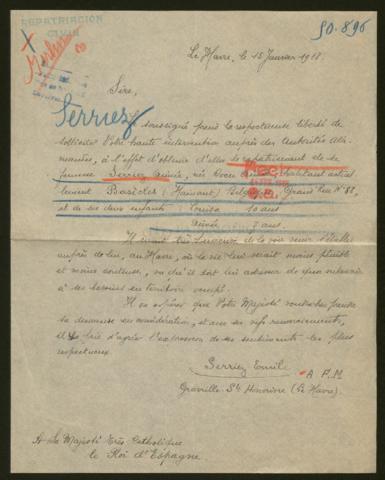 REPATRIACION
90.896
Le Havre, le 15 Janvier 1918.
Sire,
Serriez
Le soussigné prend la respectueuse liberté de
solliciter Votre haute intervention auprès des Autorités Alle-
mandes, à l'effet d'obtenir d'elles le rapatriement de sa
femme Serriez, née habitant actuel
lement Basècles (Hainaut) Belgique, Grand'Rue N° 88,
et de ses deux enfants Louisa 10 ans
7 ans.
Il serait très de la voir venir s'établir
auprès de lui, au Havre, où la vie leur serait moins pénible
et moins coûteuse, vu qu'il doit lui adresser de quoi subvenir
à ses besoins en territoire occupé.
Il ose espérer que Votre Majesté voudra bien prendre
sa demande en considération, et avec ses vifs remerciements,
il la prie d'agréer l'expression de ses sentiments les plus
respectueux.
Serriez Emile
A P.M
Graville-Ste Honorine (Le Havre).
A Sa Majesté Très Catholique
le Roi d'Espagne.